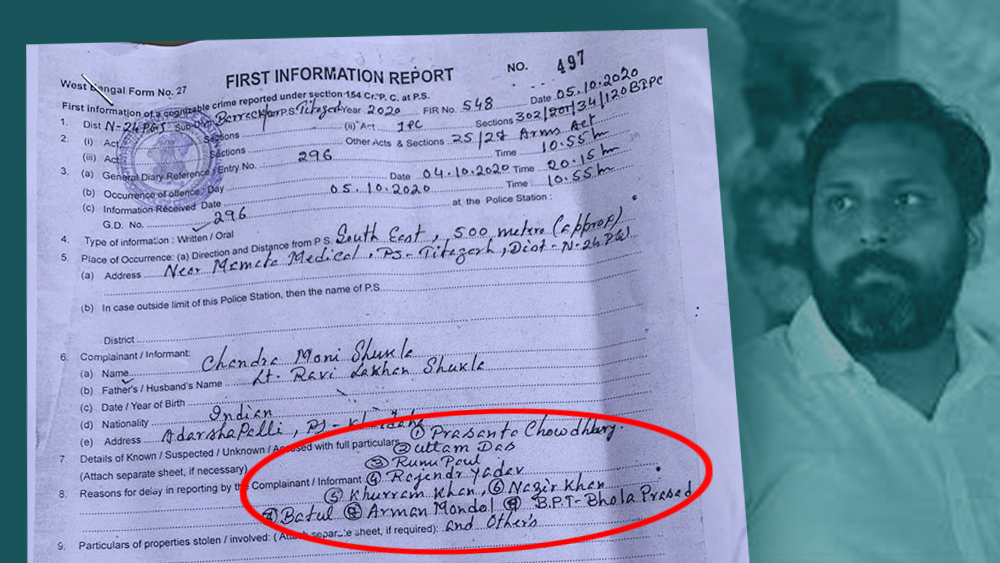 West Bengal Form No. 27
FIRST INFORMATION REPORT
NO. 497
First information of a cognizable crime reported under section 154 Cr. P. C. at P.S.
1. Dist N-24 PGS Sub-Divn Barrackpore P.S. Titagarh Year 2020 FIR No. 548 Date 05.10.2020
2. (i) Act Sections (ii) Act IPC Sections 302/201/34/120B IPC
(iii) Act Sections Other Acts & Sections 25/27 Arms Act
3. (a) General Diary Reference / Entry No. 296 Time 10.55 hr
(b) Occurrence of offence: Day Date 04.10.2020 Time 20.15 hr
(c) Information Received Date 05.10.2020 Time 10.55 hr
G.D. No. 296 at the Police Station :
4. Type of information : Written / Oral
5. Place of Occurrence: (a) Direction and Distance from P.S. South East, 500 metere (approx)
(a) Address Near Mamata Medical, PS- Titagarh, Dist- N-24 PGS
(b) In case outside limit of this Police Station, then the name of P.S.
District
6. Complainant / Informant:
(a) Name Chandra Moni Shukla
(b) Father's / Husband's Name Lt. Ravi Lakhan Shukla
(c) Date / Year of Birth
(d) Nationality Indian
(e) Address Adarsha Palli, PS- Khardaha
7. Details of Known / Suspected / Unknown / Accused with full particulars ① Prasanta Chowdhury.
② Uttam Das
(Attach separate sheet, if necessary) ③ Runu Paul
8. Reasons for delay in reporting by the Complainant / Informant ④ Rajendr Yadav
⑤ Khurram Khan, ⑥ Nazir Khan
⑦ Batul ⑧ Arman Mondol ⑨ B.P.T- Bhola Prasad
9. Particulars of properties stolen / involved: (Attach separate sheet, if required): and Other's